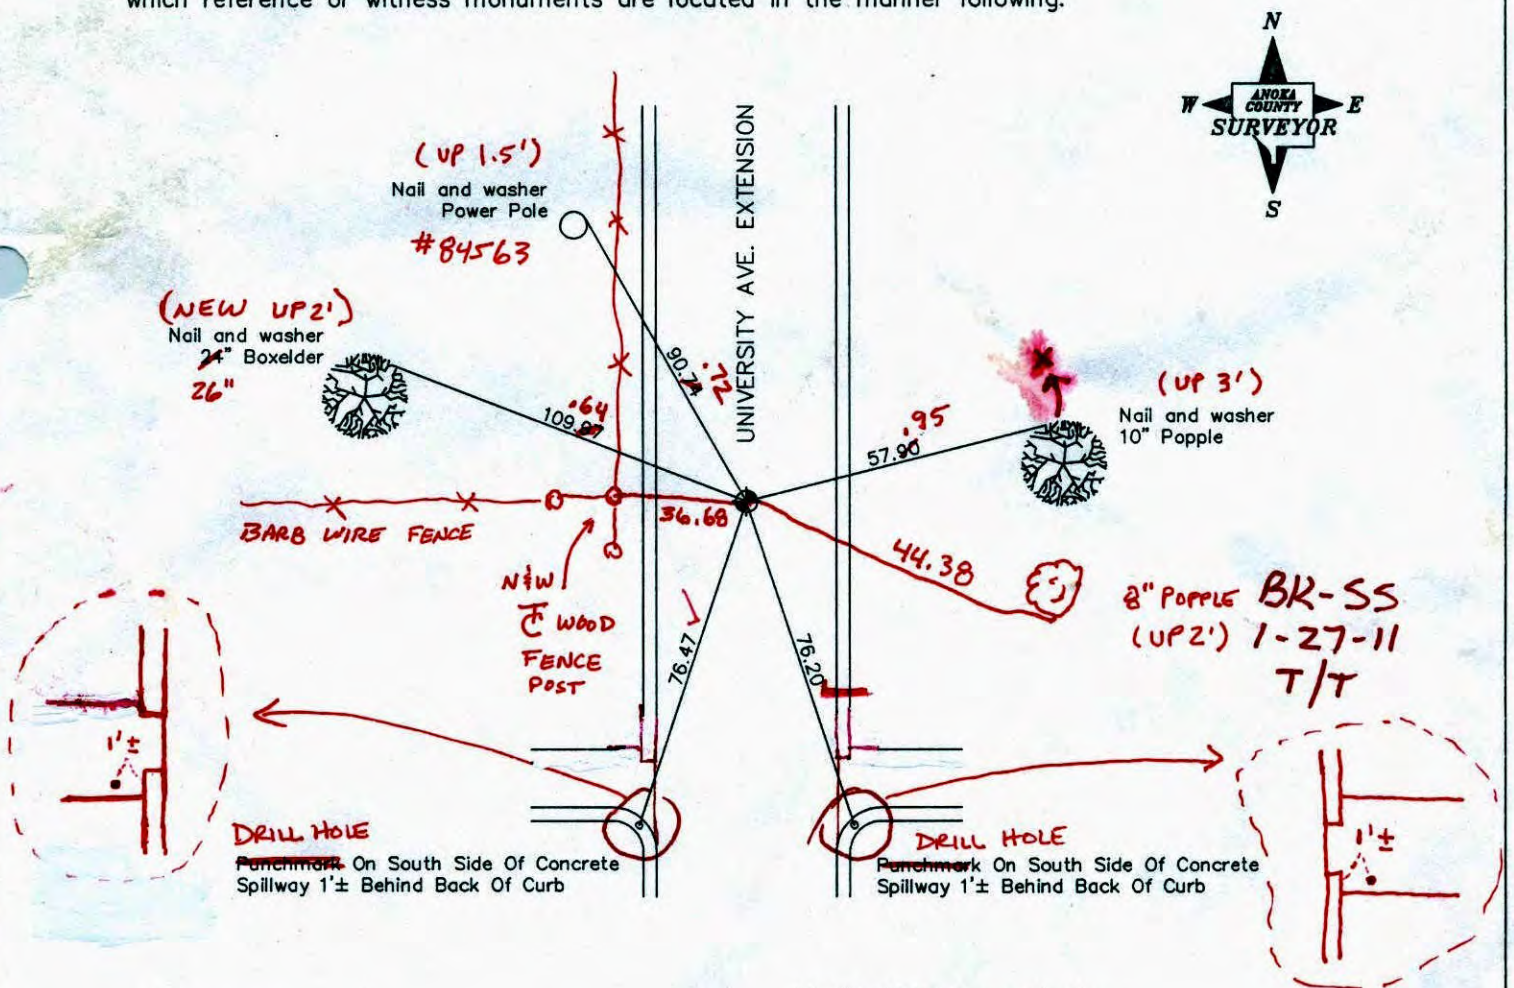 which reference or witness monuments are located in the manner following:
N
ANOKA
COUNTY
W E
SURVEYOR
S
UNIVERSITY AVE. EXTENSION
(UP 1.5')
Nail and washer
Power Pole
#84563
(NEW UP 2')
Nail and washer
24" Boxelder
26"
90.74 .72
109.87 .64
57.90 .95
(UP 3')
Nail and washer
10" Popple
BARB WIRE FENCE
36.68
44.38
N&W
WOOD
FENCE
POST
8" POPPLE BK-SS
(UP 2') 1-27-11
T/T
76.47
76.20
1'±
1'±
DRILL HOLE
Punchmark On South Side Of Concrete
Spillway 1'± Behind Back Of Curb
DRILL HOLE
Punchmark On South Side Of Concrete
Spillway 1'± Behind Back Of Curb